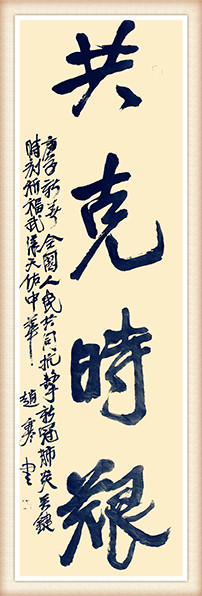 共克時艱
庚子新春全國人民共同抗擊新冠肺炎关键
時刻祈福武漢天佑中華！
趙寒书